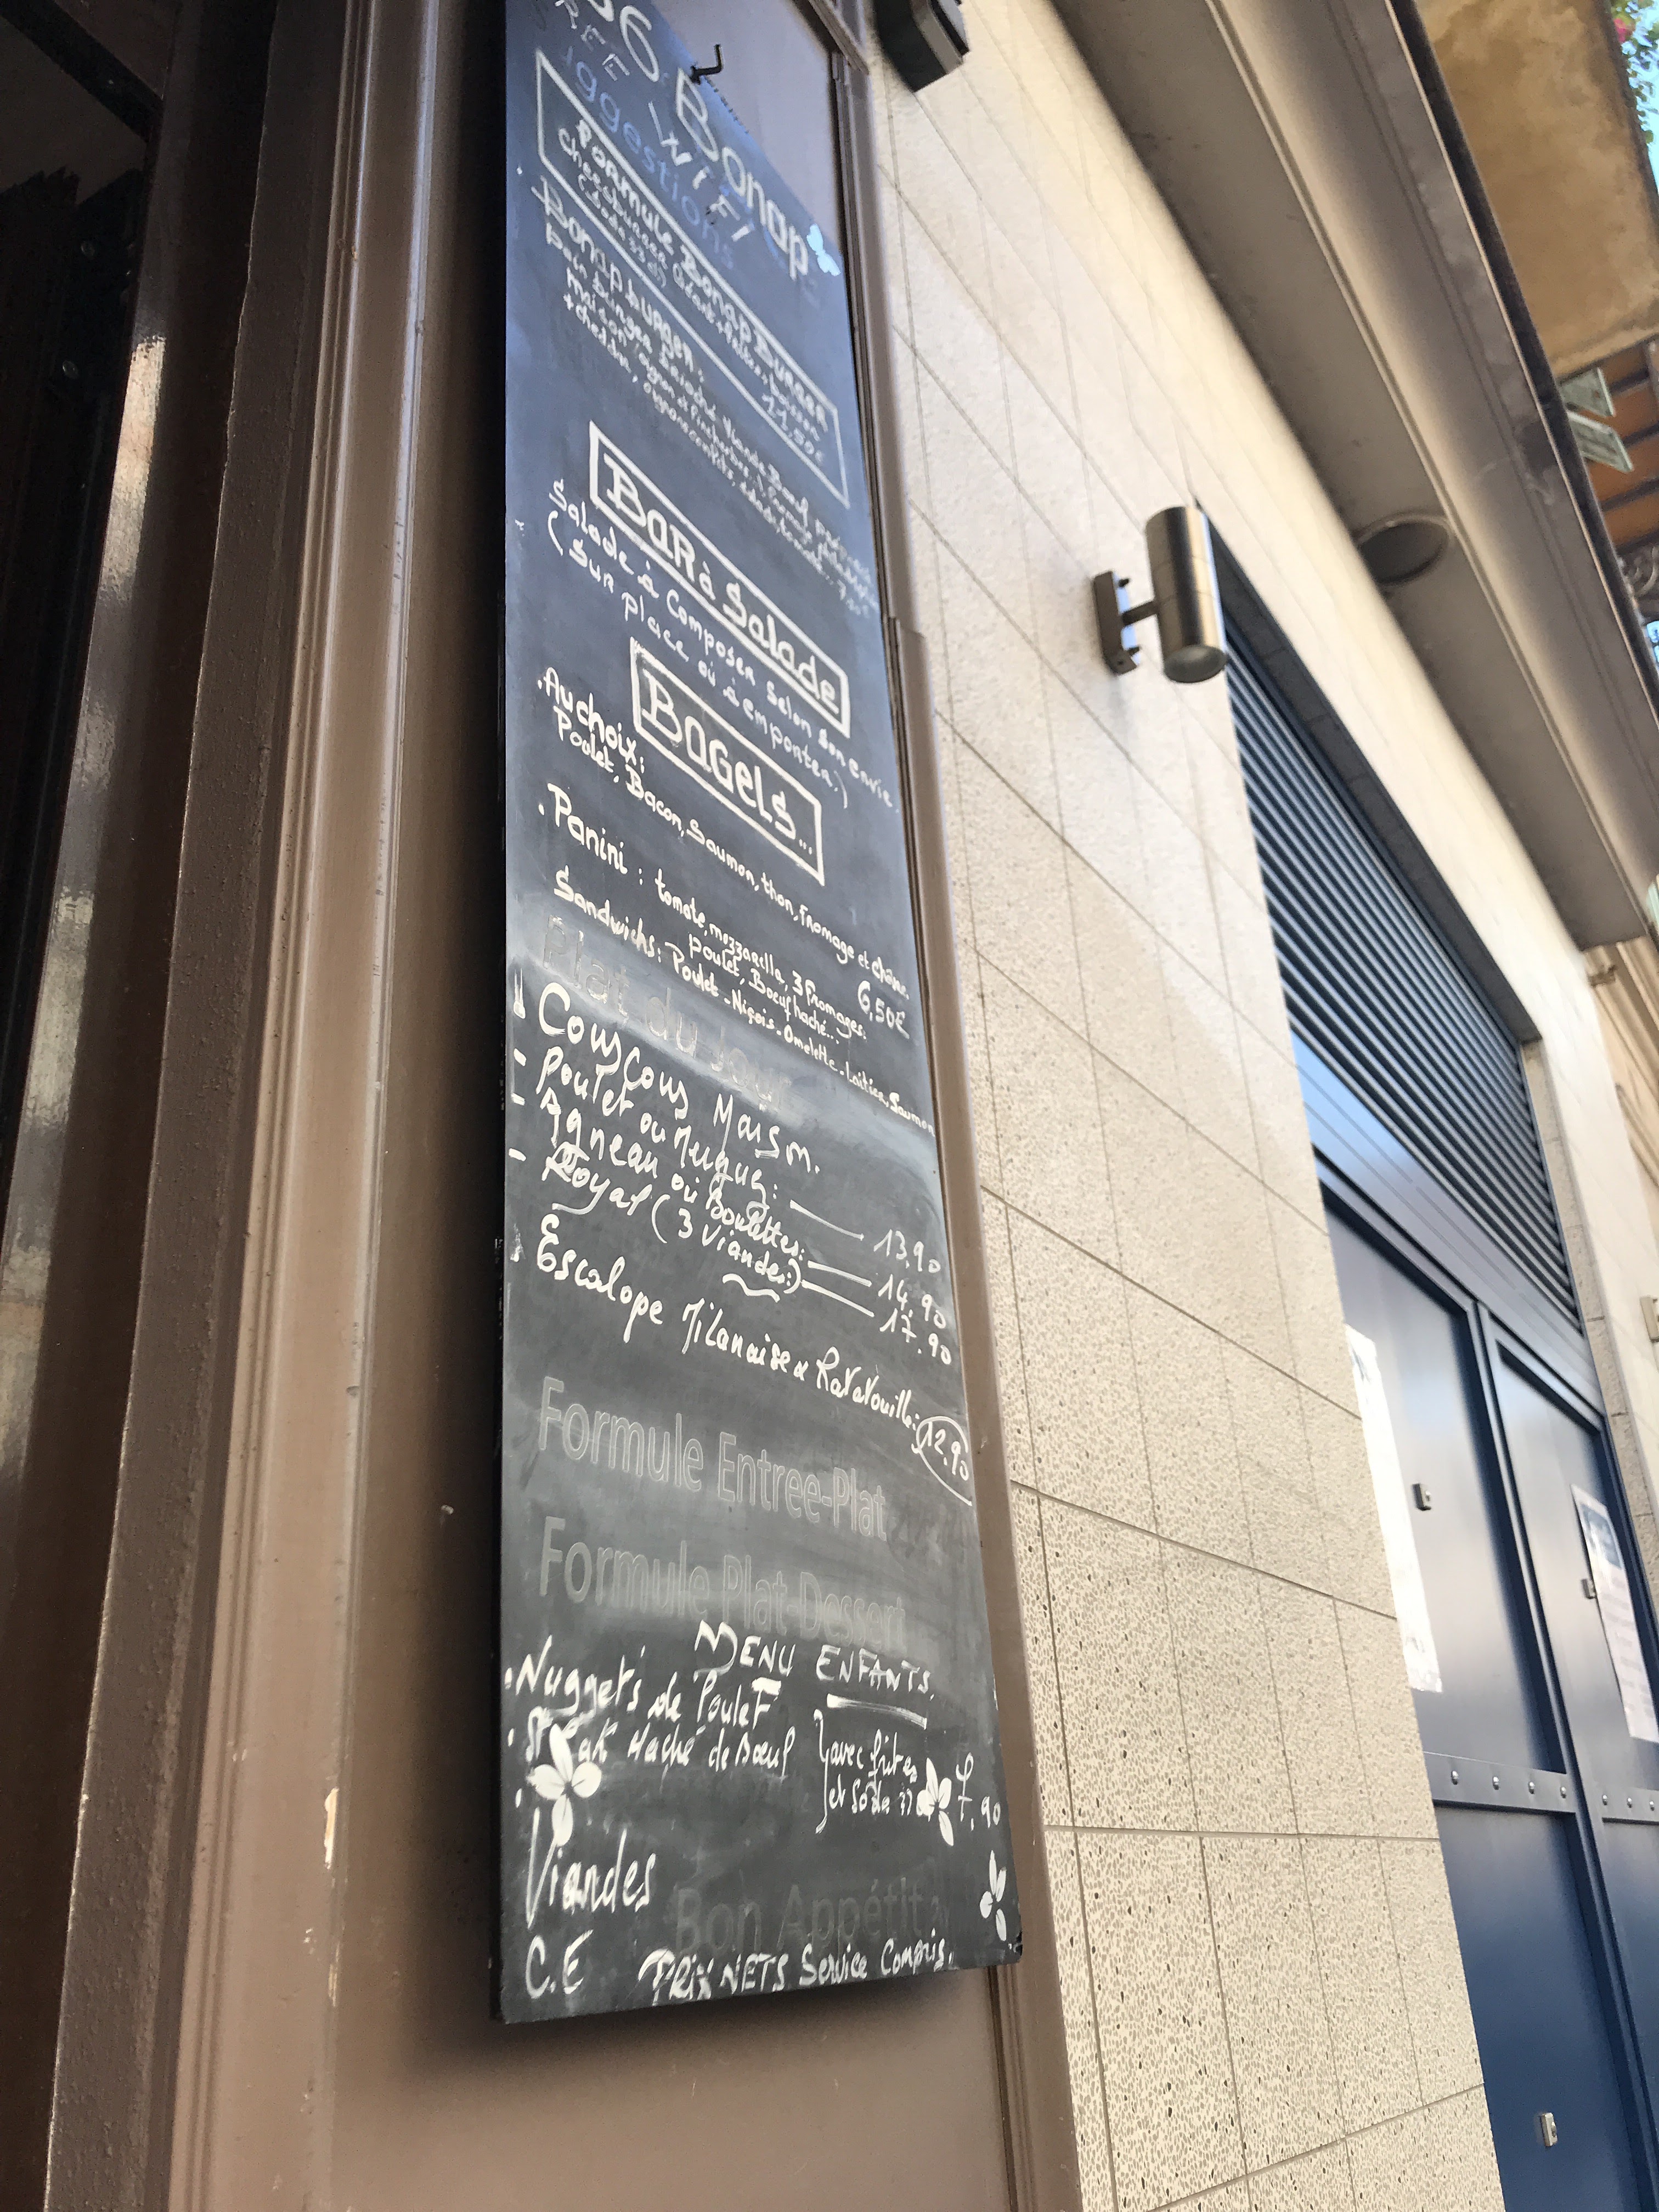 36 Bonap
FREE WIFI
Suggestions
Formule Bonap Burger
Cheeseburger Géant + frite + boisson
(Soda 33cl) 11,50€
Bonap burger:
pain burger brioché Viande Bœuf
maison, oignon
+ cheddar, oignons confits, salade, tomate... 7,90€
Bar à Salade
Salade à Composer Selon Son envie
(Sur place où à emporter)
Bagels...
. Au choix:
Poulet, Bacon, Saumon, thon, Fromage et chèvre.
6,50€
. Panini : tomate, mozzarella, 3 Fromages
poulet, Boeuf haché...
Sandwichs: Poulet - Niçois - Omelette - Laitier, Saumon
Plat du Jour
Couscous Maison.
- Poulet ou Merguez: 13,90
- Agneau où Boulettes: 14.90
- Royal (3 Viandes:) 17.90
Escalope Milanaise & Ratatouille: 12.90
Formule Entree-Plat
Formule Plat-Dessert
MENU ENFANTS.
. Nugget's de Poulet
. Steak Haché de Bœuf } avec frites
et Soda 7.90
Viandes
Bon Appétit
C.E PRIX NETS Service Compris.